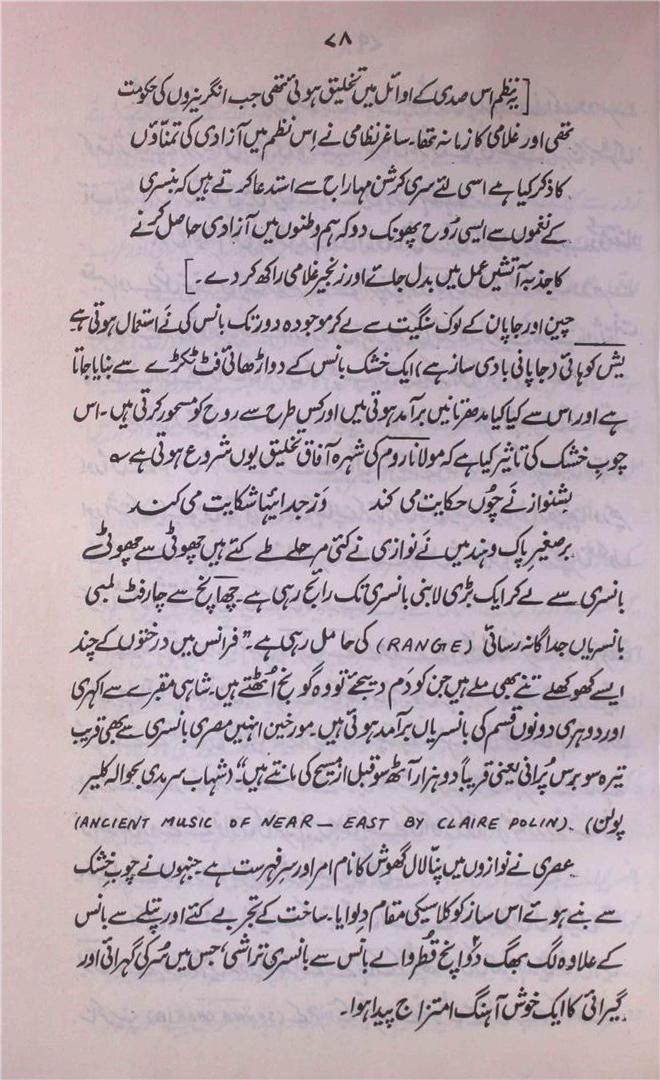 ۷۸
[یہ نظم اس صدی کے اوائل میں تخلیق ہوئی تھی جب انگریزوں کی حکومت
تھی اور غلامی کا زمانہ تھا۔ ساغر نظامی نے اِس نظم میں آزادی کی تمنّاؤں
کا ذکر کیا ہے اسی لئے سری کرشن مہاراج سے استدعا کرتے ہیں کہ بنسری
کے نغموں سے ایسی رُوح پھونک دو کہ ہم وطنوں میں آزادی حاصل کرنے
کا جذبہ آتشیں عمل میں بدل جائے اور زنجیرِ غلامی راکھ کر دے۔]
چین اور جاپان کے لوک سنگیت سے لے کر موجودہ دور تک بانس کی نَے استعمال ہوتی ہے
یش کوہائی (جاپانی بادی ساز ہے) ایک خشک بانس کے دو اڑھائی فٹ ٹکڑے سے بنایا جاتا
ہے اور اس سے کیا کیا مدھر تانیں برآمد ہوتی ہیں اور کس طرح سے روح کو مسحور کرتی ہیں۔ اس
چوبِ خشک کی تاثیر کیا ہے کہ مولانا روم کی شہرہ آفاق تخلیق یوں شروع ہوتی ہے ؎
بشنو از نَے چُوں حکایت می کند وز جدائیہا شکایت می کند
برصغیر پاک و ہند میں نَے نوازی نے کئی مرحلے طے کئے ہیں چھوٹی سے چھوٹی
بانسری سے لے کر ایک بڑی لابنی بانسری تک رائج رہی ہے۔ چھ اِنچ سے چار فٹ لمبی
بانسریاں جداگانہ رسائی (RANGE) کی حامل رہی ہے۔ "فرانس میں درختوں کے چند
ایسے کھوکھلے تنے بھی ملے ہیں جن کو دَم دیجئے تو وہ گونج اُٹھتے ہیں۔ شاہی مقبرے سے اکہری
اور دوہری دونوں قسم کی بانسریاں برآمد ہوئی ہیں۔ مورخین انہیں مصری بانسری سے بھی قریب
تیرہ سو برس پُرانی یعنی قریباً دو ہزار آٹھ سو قبل از مسیح کی مانتے ہیں" (شہاب سرمدی بحوالہ کلیر
پولن) (ANCIENT MUSIC OF NEAR — EAST BY CLAIRE POLIN).
عصری نے نوازوں میں پنّا لال گھوش کا نام امر اور سر فہرست ہے۔ جنہوں نے چوبِ خشک
سے بنے ہوئے اس ساز کو کلاسیکی مقام دِلوایا۔ ساخت کے تجربے کئے اور پتلے سے بانس
کے علاوہ لگ بھگ دو اِنچ قُطر والے بانس سے بانسری تراشی، جس میں سُر کی گہرائی اور
گیرائی کا ایک خوش آہنگ امتزاج پیدا ہوا۔